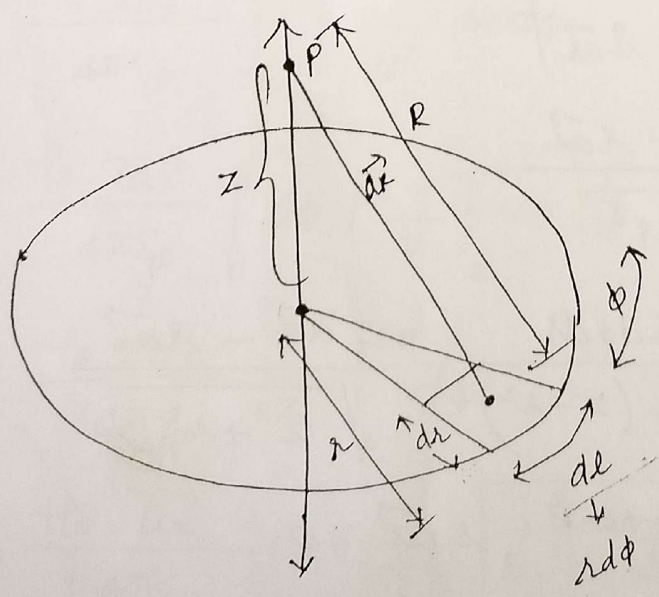 P
R
Z
aR
ϕ
r
dr
dl
rdϕ